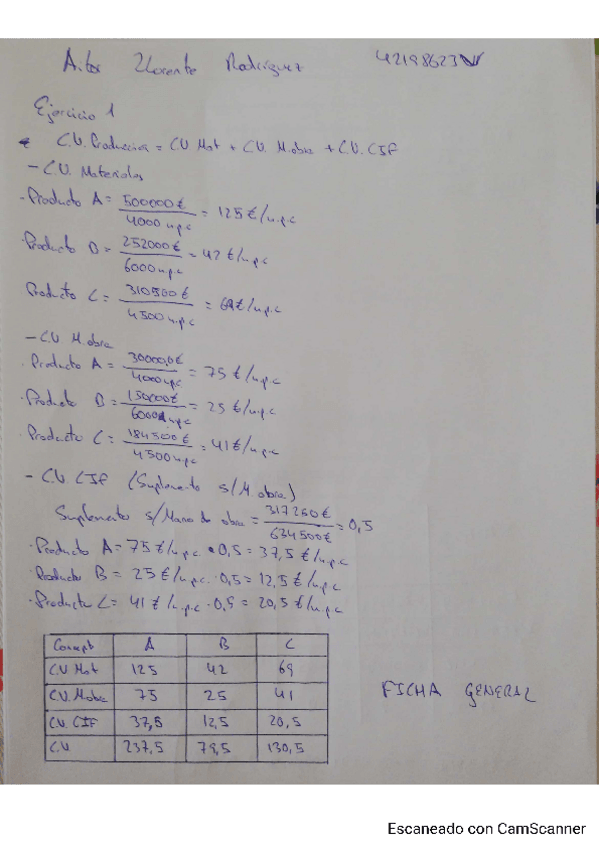 Aitor Llorente Rodríguez 42198623W
Ejercicio 1
C.U. Produccion = CU Mat + C.U. M.obra + C.U. CIF
- C.U. Materiales
· Producto A = 500000€ / 4000 u.p.c = 125 €/u.p.c
· Producto B = 252000€ / 6000 u.p.c = 42 €/u.p.c
Producto C = 310500 € / 4500 u.p.c = 69€/u.p.c
- C.U M.obra
· Producto A = 300000€ / 4000 upc = 75 €/u.p.c
· Producto B = 150000€ / 6000 u.p.c = 25 €/u.p.c
Producto C = 184500€ / 4500 u.p.c = 41€/u.p.c
- C.U. CIF (Suplemento s/M.obra)
Suplemento s/Mano de obra = 317250€ / 634500€ = 0,5
· Producto A = 75€/u.p.c · 0,5 = 37,5 €/u.p.c
· Producto B = 25€/u.p.c · 0,5 = 12,5 €/u.p.c
· Producto C = 41 €/u.p.c · 0,5 = 20,5 €/u.p.c
Concept A B C
C.U Mat 125 42 69
C.U. M.obra 75 25 41
C.U. CIF 37,5 12,5 20,5
C.U 237,5 79,5 130,5
FICHA GENERAL
Escaneado con CamScanner